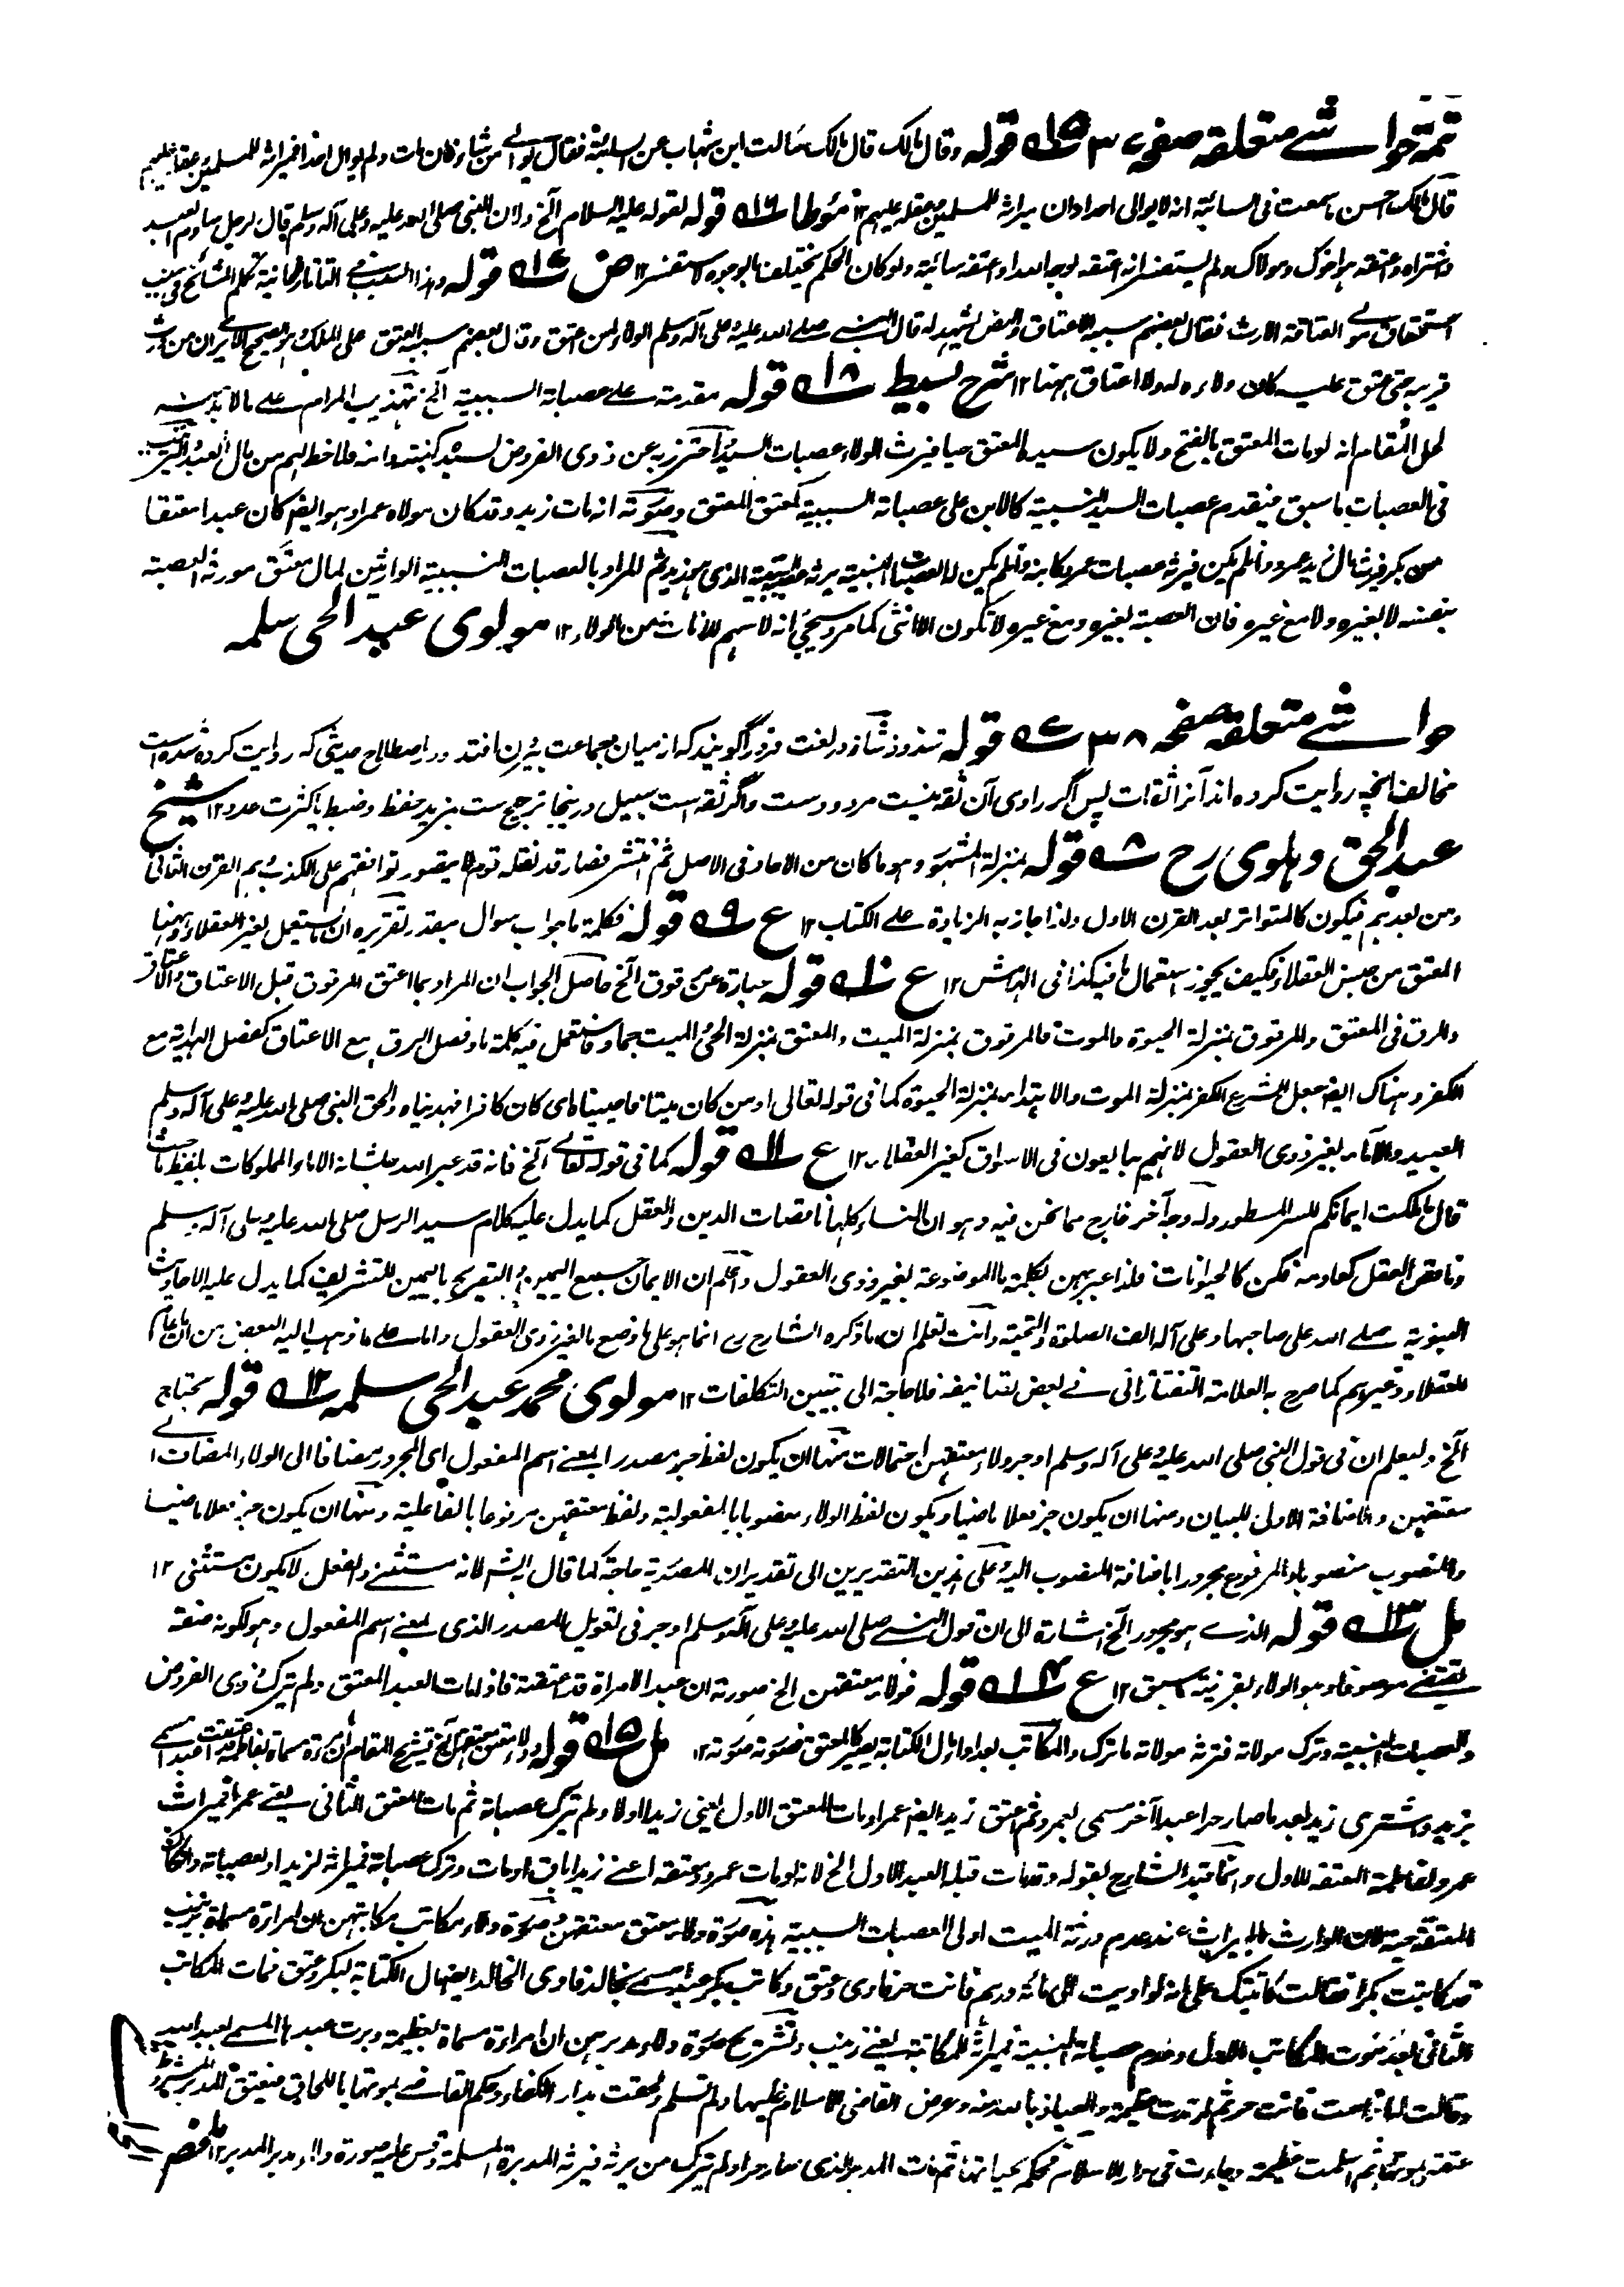 تتمة حواشے متعلقہ صفحہ ٣ ١٥ قوله وقال مالك قال مالك سألت ابن شهاب عن السائبة فقال يوالے من شاء فان مات ولم يوال احدا فميراثه للمسلمين وعقله عليهم
قال مالك احسن ما سمعت فى السائبة انه لا يوالى احدا وان ميراثه للمسلمين وعقله عليهم ١٢ مؤطا ١٦ قوله لقوله عليه السلام الخ ولان النبى صلى الله عليه وعلى آله وسلم قال لرجل ساوم العبد
واشتراه واعتقه هو اخوك ومولاك ولم يستفسر انه اعتقه لوجه الله او اعتقه سائبة ولو كان الحكم يختلف بالوجوه لاستفسر ١٢ ض ١٧ قوله وهذا السبب فے التاتارخانية تكلم المشائخ فى سبب
استحقاق مولے العتاقة الارث فقال بعضهم سببه الاعتاق والنص يشهد له قال النبے صلے الله عليه وعلى آله وسلم الولاء لمن اعتق وقال بعضهم سببه العتق على الملك وهو الصحيح الا يرى ان من ورث
قريبه حتى عتق عليه كان ولاءه له ولا اعتاق ههنا ١٢ شرح بسيط ١٨ قوله مقدمة علے عصباته السببية الخ تهذيب المرام علے ما لا بد منه
لحل المقام انه لو مات المعتق بالفتح ولا يكون سيده المعتق حيا فيرث الولاء عصبات السيد احترز به عن ذوى الفروض لسيده كبنته وامه فلا حظ لهم من مال العبد
فى العصبات ما سبق فيقدم عصبات السيد النسبية كالابن على عصباته السببية كمعتق المعتق وصورته انه مات زيد وقد كان مولاه عمرا وهو ايضا كان عبدا معتقا
من بكر فيرث مال زيد عمرو وان لم يكن فيرثه عصبات عمرو كابنه وان لم يكن له العصبات النسبية يرثه عصبته السببية الذى هو بكر ثم المراد بالعصبات النسبية الوارثين لمال معتق مورثه العصبة
بنفسه لا بغيره ولا مع غيره فان العصبة بغيره ومع غيره لا تكون الا انثى كما مر وسيجئ انه لا سهم للاناث من الولاء ١٢ مولوى عبد الحى سلمه
حواشے متعلقہ صفحہ ٣٨ ٧ قوله شذوذ شاذ در لغت فرد را گويند كه از ميان جماعت بيرون افتد ودر اصطلاح حديثى كه روايت كرده شده است
مخالف آنچه روايت كرده اند آنرا ثقات پس اگر راوى آن ثقه نيست مردودست واگر ثقه است سبيل درينجا ترجيح ست بمزيد حفظ وضبط يا كثرت عدد ١٢ شيخ
عبد الحق دہلوى رح ٨ قوله بمنزلة المشهور وهو ما كان من الآحاد فى الاصل ثم انتشر فصار قد نقله قوم لا يتصور توافقهم على الكذب وهم القرن الثانى
ومن بعدهم فيكون كالمتواتر بعد القرن الاول ولذا جاز به الزيادة علے الكتاب ١٢ ع ٩ قوله فكلمة ما جواب سوال مقدر تقريره ان ما يستعمل لغير العقلاء وههنا
المعتق من جنس العقلاء فكيف يجوز استعمال ما فيه كذا فى الهامش ١٢ ع ١٠ قوله عبارة عن مرقوق الخ حاصل الجواب ان المراد بما اعتق المرقوق قبل الاعتاق والاعتاق
والرق فى المعتق والمرقوق بمنزلة الحيوة والموت فالمرقوق بمنزلة الميت والمعتق بمنزلة الحى والميت جماد فاستعمل فيه كلمة ما وفصل الرق مع الاعتاق كفصل الهداية مع
الكفر وهناك ايضا جعل الشرع الكفر بمنزلة الموت والاهتداء بمنزلة الحيوة كما فى قوله تعالى اومن كان ميتا فاحييناه اى كان كافرا فهديناه والحق النبى صلى الله عليه وعلى آله وسلم
العبيد والاماء بغير ذوى العقول لانهم يبايعون فى الاسواق كغير العقلاء ١٢ ع ١١ قوله كما فى قوله تعالے الخ فانه قد عبر الله جل شانه الاماء والمملوكات بلفظ ما حيث
قال ما ملكت ايمانكم للسر المسطور وله وجه آخر خارج مما نحن فيه وهو ان النساء كلها ناقصات الدين والعقل كما يدل عليه كلام سيد الرسل صلى الله عليه وعلى آله وسلم
وناقص العقل كعادمه فكن كالحيوانات فلذا عبر بهن بكلمة ما الموضوعة لغير ذوى العقول واعلم ان الايمان جمع اليمين والتصريح باليمين للتشريف كما يدل عليه الاحاديث
النبوية صلے الله على صاحبها وعلى آله الف الصلوة والتحية وانت تعلم ان ما ذكره الشارح رح انما هو على ما وضع ما لغير ذوى العقول واما علے ما ذهب اليه البعض من ان ما عام
للعقلاء وغيرهم كما صرح به العلامة التفتازانى فے بعض تصانيفه فلا حاجة الى تبيين التكلفات ١٢ مولوى محمد عبد الحى سلمه ١٢ قوله يحتاج
الخ وليعلم ان فى قول النبى صلى الله عليه وعلى آله وسلم او جر ولاء معتقهن احتمالات منها ان يكون لفظ جر مصدرا بمعنے اسم المفعول اى المجرور مضافا الى الولاء المضاف الے
معتقهن والاضافة الاولى للبيان ومنها ان يكون جر فعلا ماضيا ويكون لفظ الولاء منصوبا بالمفعولية ولفظ معتقهن مرفوعا بالفاعلية ومنها ان يكون جر فعلا ماضيا
والمنصوب منصوبا والمرفوع مجرورا باضافة المنصوب اليه وعلى هذين التقديرين الى تقدير ان المصدرية حاجة كما قال الشارح لانه مستثنے والفعل لا يكون مستثنى ١٢
مل ١٣ قوله الذے هو مجرور الخ اشارة الى ان قول النبے صلى الله عليه وعلى آله وسلم او جر فى تاويل المصدر الذى بمعنے اسم المفعول وهو لكونه صفة
يقتضے موصوفا وهو الولاء بقرينة ما سبق ١٢ ع ١٤ قوله فولاء معتقهن الخ صورته ان عبدا لامراة قد اعتقته فاذا مات العبد المعتق ولم يترك ذوى الفروض
والعصبات النسبية وترك مولاته فترثه مولاته ما ترك والمكاتب بعد اداء بدل الكتابة يصير كالمعتق فصورته صورته ١٢ مل ١٥ قوله وولاء معتق معتقهن الخ تشريح المقام ان امرأة مسماة بفاطمة اعتقت عبدا سمے
بزيد واشترى زيد بعد ما صار حرا عبدا آخر مسمى بعمرو ثم اعتق زيد ايضا عمرا ومات المعتق الاول يعنى زيدا اولا ولم يترك عصباته ثم مات المعتق الثانى يعنے عمرا فميراث
عمرو لفاطمة المعتقة للاول وانما قيد الشارح بقوله وقد مات قبله العبد الاول الخ لانه لو مات عمرو ومعتقه اعنے زيدا باق او مات وترك عصباته فميراثه لزيد او لعصباته وان كان
المعتقة حية لان الوارث للميراث عند عدم ورثة الميت اولى العصبات السببية هذه صورة ولاء معتق معتقهن وصورة ولاء مكاتب مكاتبهن ان امراة مسماة بزينب
قد كاتبت بكرا فقالت كاتبتك على انه لو اديت الى مائة درهم فانت حر فادى وعتق وكاتب بكر عبدا مسمے بخالد فادى الخالد ايضا مال الكتابة لبكر وعتق فمات المكاتب
الثانى بعد موت المكاتب الاول وعدم عصباته النسبية فميراثه للمكاتبة يعنے زينب وتشريح صورة ولاء مدبرهن ان امراءة مسماة بعظيمة دبرت عبدها المسمے بعبد الله
وقالت له ان مت فانت حر ثم ارتدت عظيمة والعياذ بالله منه وعرض القاضى الاسلام عليها ولم تسلم ولحقت بدار الكفار وحكم القاضے بموتها باللحاق فيعتق المدبر
عتقه بموتها ثم اسلمت عظيمة وجاءت فى دار الاسلام فحكم بحياتها ثم مات المدبر الذى صار حرا ولم يترك من يرثه فيرثه المدبرة المسلمة وقس عليه صورة ولاء مدبر المدبر ١٢ ملخص